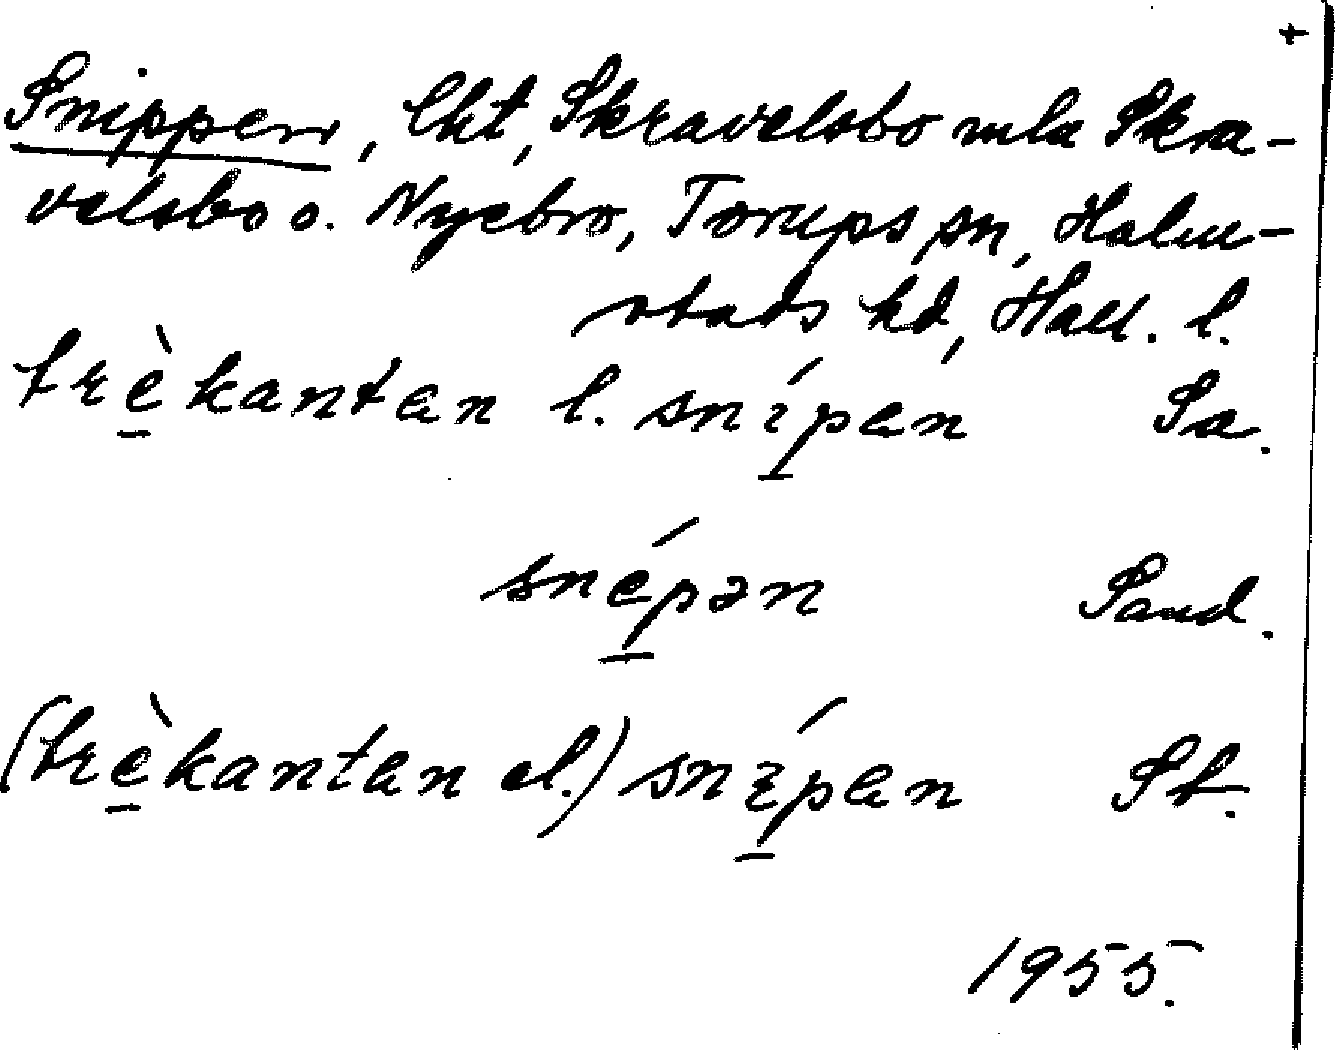 +
Snippen, lht, Skravelsbo mla Skra-
velsbo o. Nyebro, Torups sn, Halm-
stads hd, Hall. l.
trè̱kantan l. snípan Sa.
snépən Sand.
(trè̱kantan el.) snípan St.
1955.